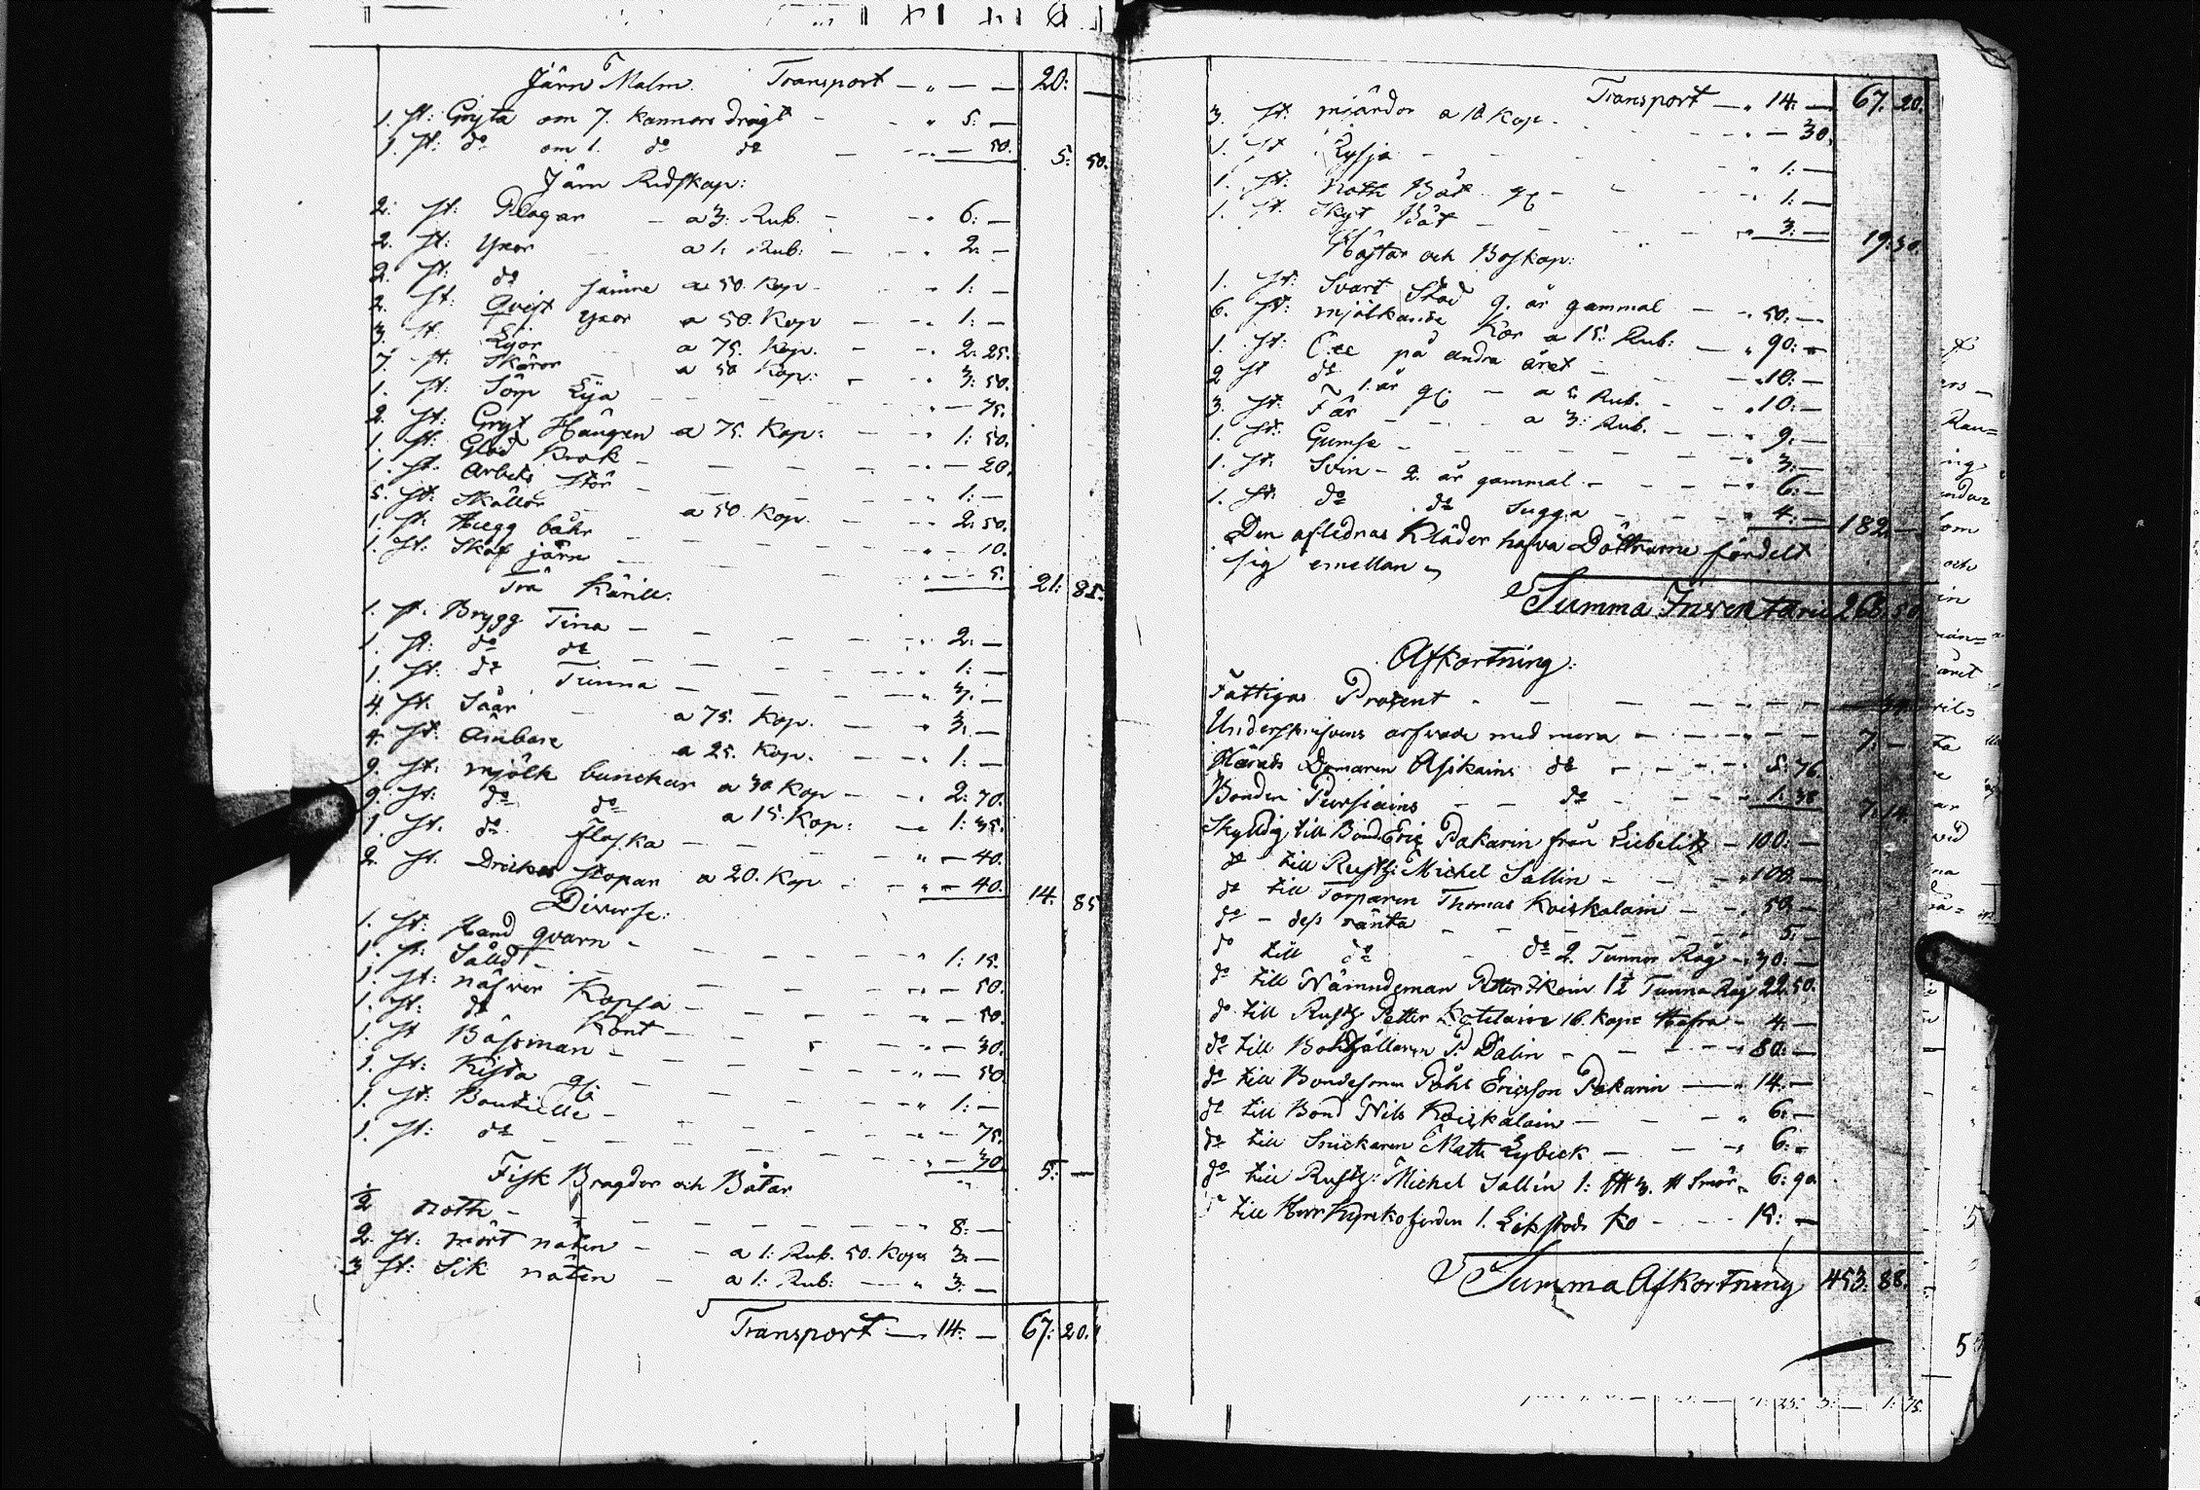 Järn Malm. Transport — „ — — 20: —
1. st: Gryta om 7. kannors drägt - - „ 5: —
1. st: do om 1. do do — - „ — 50. 5: 50.
Järn Redskap:
2. st: Plogar - a 3: Rub. - - „ 6: —
2. st: Yxor a 1: Rub: — - „ 2: —
2. st: do sämre a 50. Kop - - „ 1: —
2. st: Qvist yxor a 50. Kop — - „ 1: —
3. st: Lijor a 75. Kop. - - „ 2: 25.
7. st: Skäror a 50 Kop: - - „ 3: 50.
1. st: Sörp Lija - - - - „ — 75.
2. st: Gryt Hängen a 75. Kop: — - „ 1: 50.
1. st: Glöd Krok - - - - „ — 20.
1. st. Arbets Stör - - - - „ 1: —
5. st: Skällor a 50. Kop. — - „ 2: 50.
1. st. Nregg båhr - - - - „ — 10.
1. st: Skaf järn - - - - „ — 5. 21: 85.
Trä Kärill:
1. st. Brygg Tina - - - - „ 2: —
1. st: do do - - - - „ 1: —
1. st: do Tunna - - - - „ 3: —
4. st: Såar a 75. Kop. — „ 3: —
4. st: Ämbare a 25. Kop. — „ 1: —
9. st: mjölk bunckar a 30 Kop — - „ 2: 70.
9: st: do do a 15: Kop: — „ 1: 35.
1. st. do flaska - - - „ — 40.
2. st. Drickes stopar a 20. Kop - - „ — 40. 14: 85
Diverse:
1. st: Hand qvarn - - - - „ 1: 15.
1. st: Såld - - - - „ — 50.
1. st: näfver Kopsa - - - „ — 50.
1. st: do Kont - - - „ — 30.
1. st Båssman - - - - „ — 50
1. st: Kista gl: - - - - „ 1: —
1. st: Boutielle - - - - „ — 75.
1. st: do - - - - „ — 30. 5: —
Fisk Bragder och Båtar
½ noth - - - - - „ 8: —
2. st: mört näten - - a 1: Rub. 50. Kop: 3: —
3 st: Sik näten - a 1: Rub: — „ 3: —
Transport — „ 14: — 67: 20.
Transport — „ 14: — 67: 20.
3. st: mjärdor a 10 Kop - - - „ — 30.
1. st Lysja - - - - „ 1: —
1. st: noth Båt gl - - „ 1: —
1. st: Skjut Båt - - - - „ 3: — 19: 30.
Hästar och Boskap:
1. st: Svart Stod 9. år gammal - - „ 50: —
6. st: mjölkande Kor a 15: Rub: — „ 90: —
1. st: Qvi på andra året - - - „ 10: —
2 st do 1. år gl: - a 5 Rub. - - „ 10: —
3. st: Får - - a 3: Rub. - - „ 9: —
1. st: Gumse - - - - - „ 3: —
1. st: Svin - 2. år gammal - - - „ 6: —
1. st: do do Sugga - - - „ 4: — 182: —
Den aflednas Kläder hafva Döttrarne fördelt
sig emellan „
Summa Inventarii 268: 50.
Afkortning:
Fattigas Procent - - - - - -
Underskrifvens arfvode med mera - - - - 7: —
Härads Domaren Asikains do - - - - 5: 76.
Bonden Pursiains - - do - - „ 1: 38 7: 14.
Skyldig till Bond. Eric Pakarin från Libelitz - 100: —
do till Rustg: Michel Sallin - - - „ 100: —
do till Torparen Thomas Koiskalain - - „ 50: —
do - dess ränta - - - - - „ 5: —
do till do - do 2. Tunnor Råg - „ 30: —
do till Nämndeman Petter Ikoin 1½ Tunna Råg 22: 50.
do till Rustg Petter Kotilaine 16. Kapr Hafra - 4: —
do till Bokhållaren P. Dalin - - - - 80: —
do till Bondesonen Påhl Ericsson Pakarin — „ 14: —
do till Bond Nils Koiskalain - - - „ 6: —
do till Snickaren Matts Lybeck - - - „ 6: —
do till Rustg: Michel Sallin 1: 3. Smör - 6: 90.
till Herr 1. Lik stods Ko - - - 15: —
Summa Afkortning 453: 88.